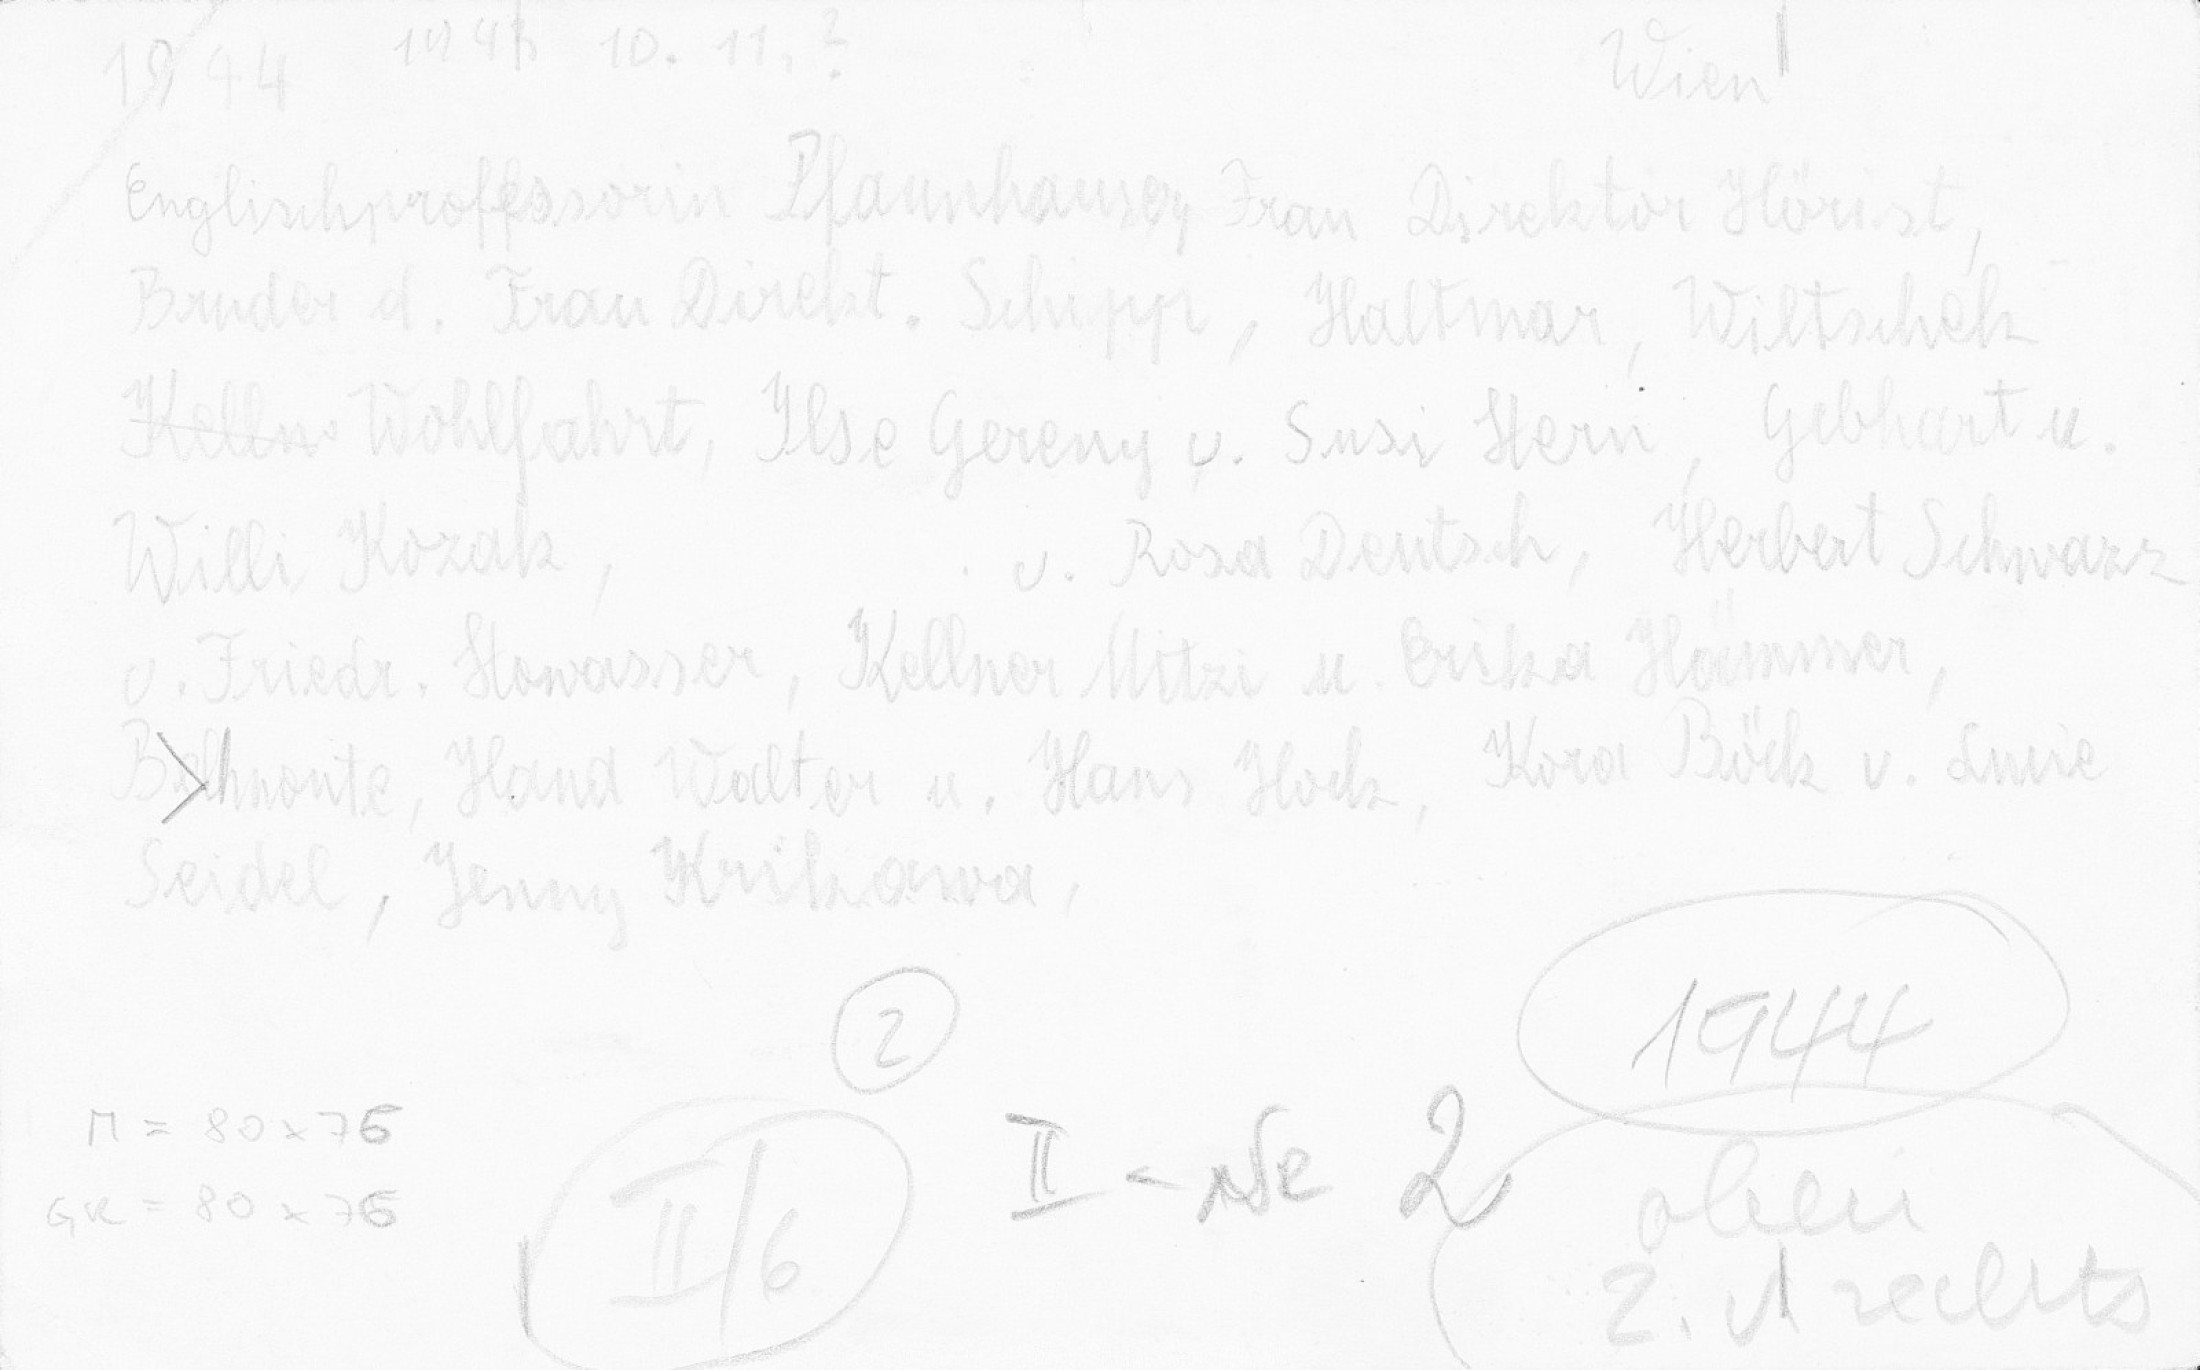 1944 1943 10. 11. ? Wien
Englischprofessorin Pfaunhauser, Frau Direktor Hörist,
Bruder d. Frau Direkt. Schipp, Haltmar, Wiltschek
Kelln Wohlfahrt, Ilse Gereny u. Susi Stern, Gebhart u.
Willi Kozak, v. Rosa Deutsch, Herbert Schwarz
v. Friedr. Stowasser, Kellner Mitzi u. Erika Hämmer,
Hand Walter u. Hans Hock, Kora Böck v. Lucie
Seidel, Jenny Krikawa,
2
1944
M = 80 x 76
GR = 80 x 76
II/6
II - Ne 2
oben
2. v. rechts